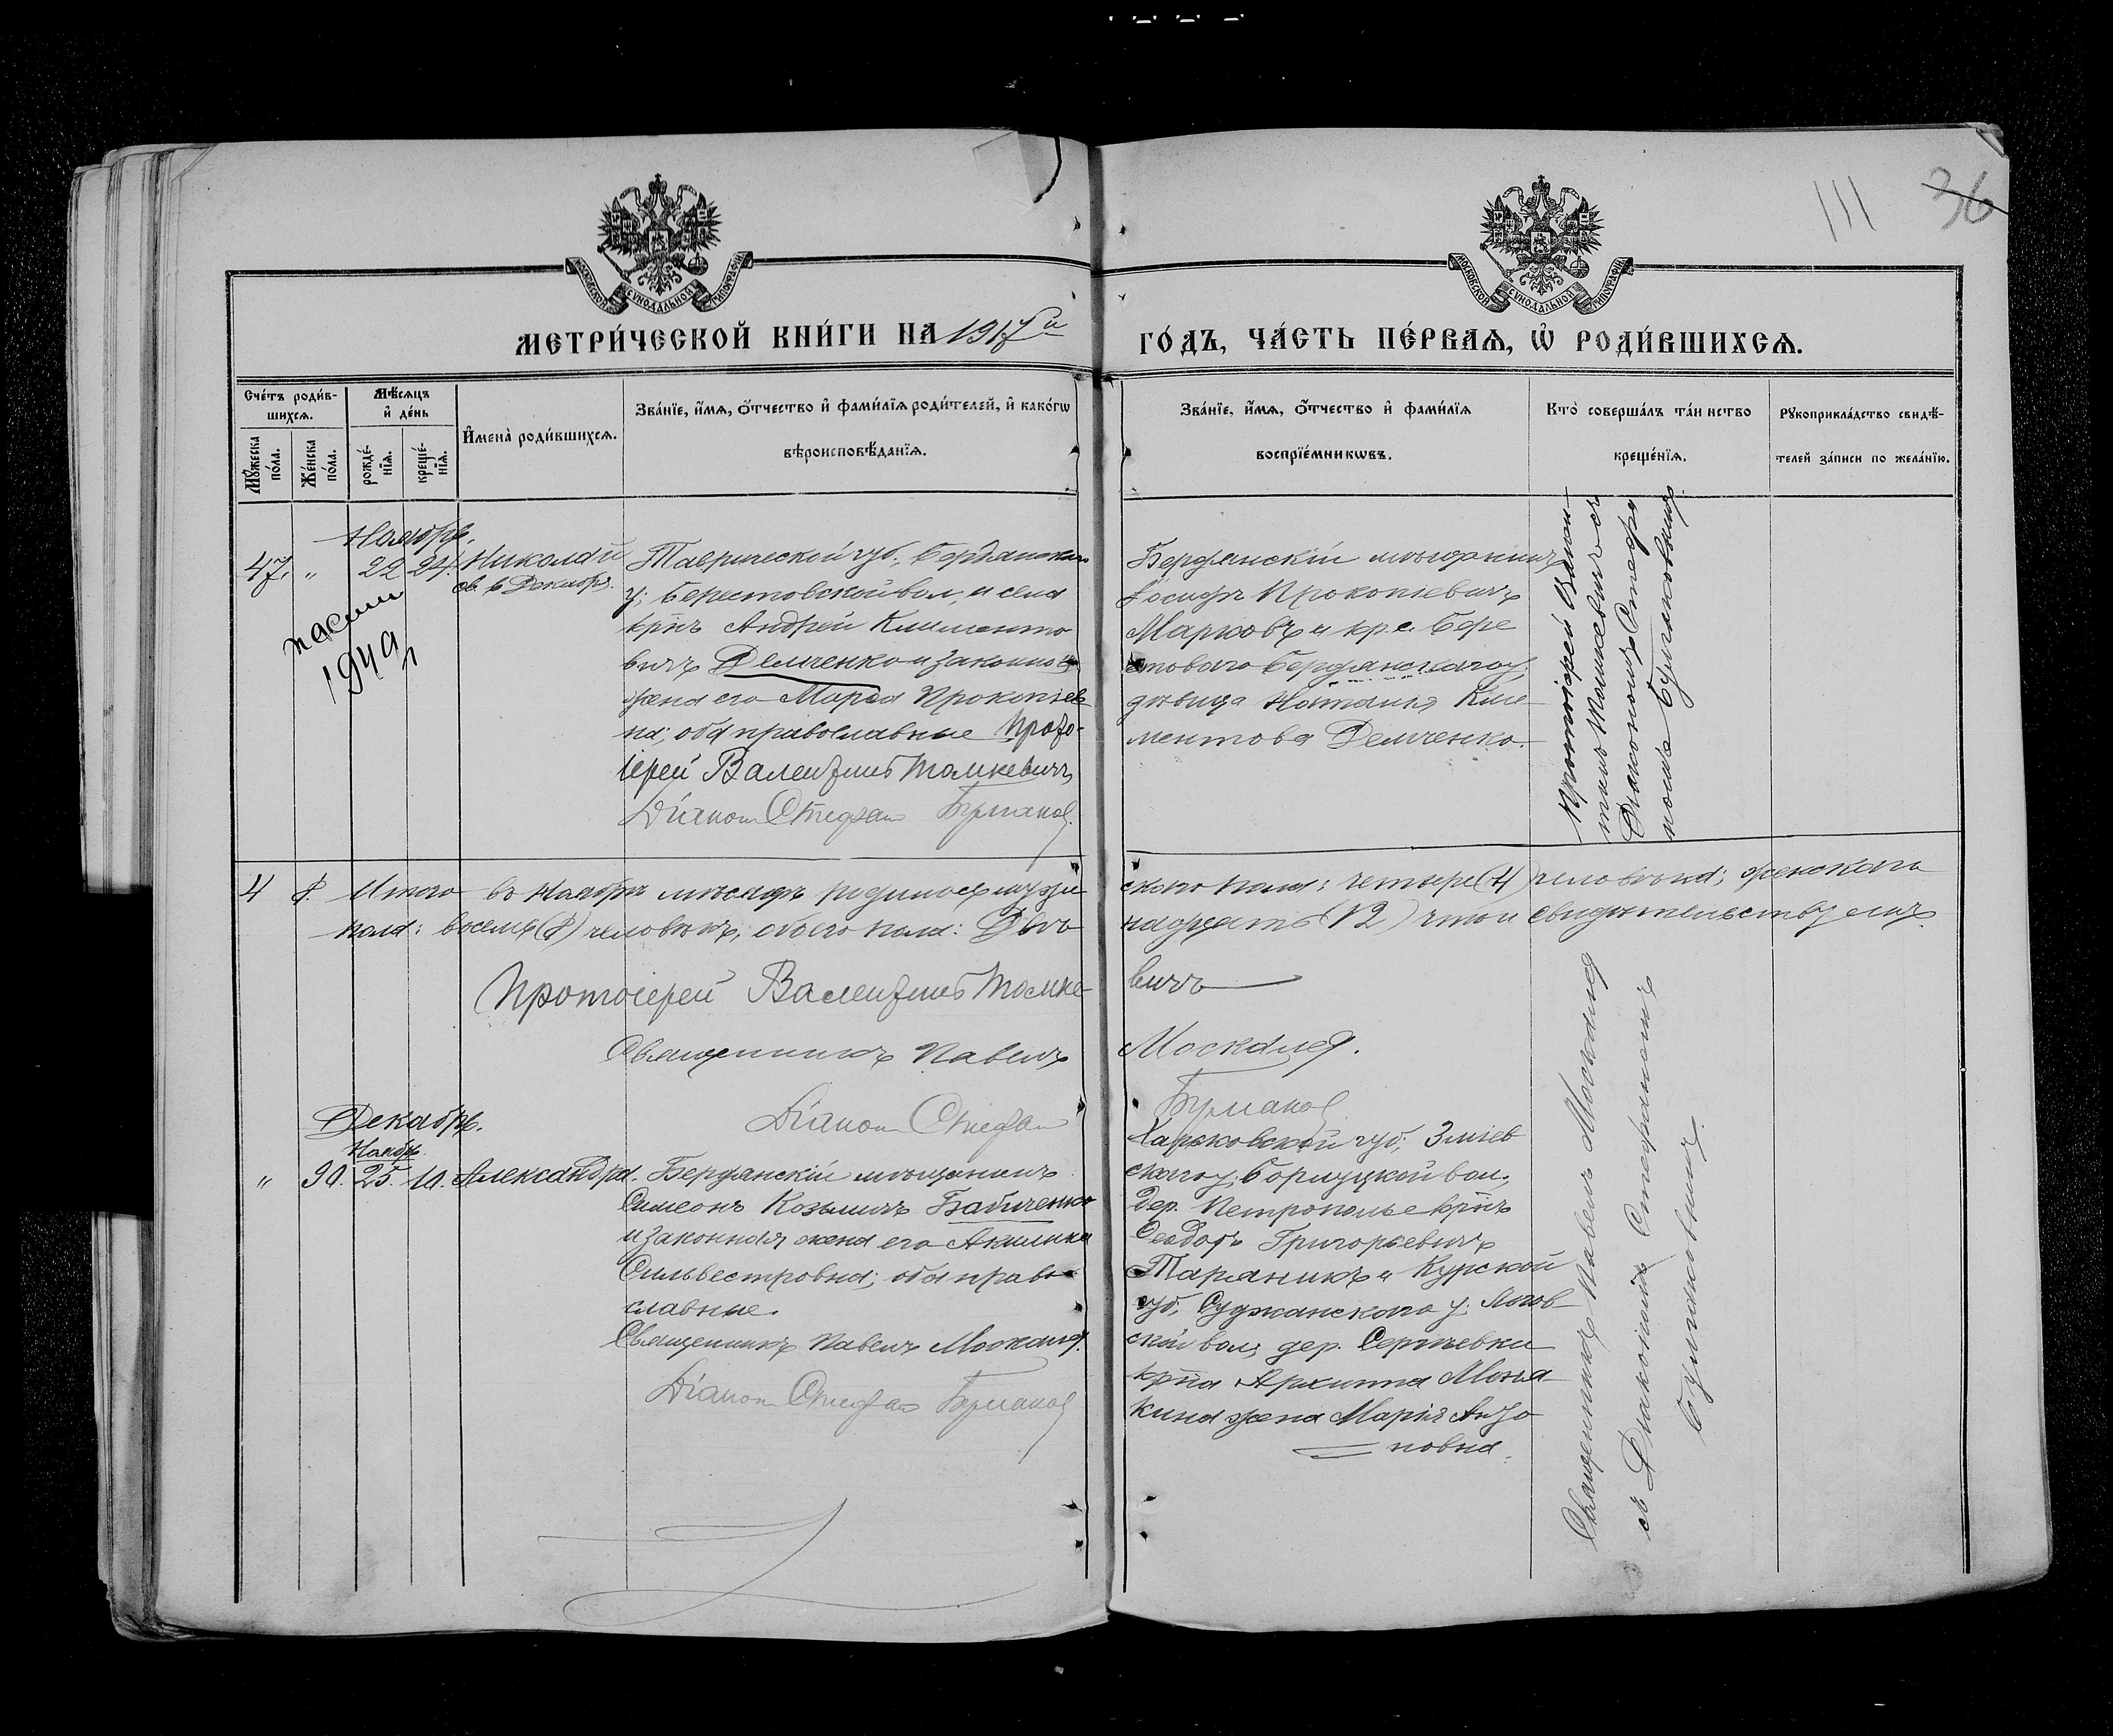 111 36
МОСКОВСКОЙ СѴНОДАЛЬНОЙ ТИПОГРАФІИ
МОСКОВСКОЙ СѴНОДАЛЬНОЙ ТИПОГРАФІИ
МЕТРИ́ЧЕСКОЙ КНИ́ГИ НА 1917й
ГО́ДЪ, ЧА́СТЬ ПЕ́РВАѦ, Ѡ҆ РОДИ́ВШИХСѦ.
Сче́тъ роди́в-
шихсѧ.
Мꙋжеска по́ла.
Же́нска по́ла.
Мѣ́сѧцъ
и҆ де́нь
рожде́-
нїѧ.
креще́-
нїѧ.
И҆мена̀ роди́вшихсѧ.
Зва́нїе, и҆́мѧ, ѻ҆́тчество и҆ фами́лїѧ роди́телей, и҆ како́гѡ
вѣроисповѣ́данїѧ.
Зва́нїе, и҆́мѧ, ѻ҆́тчество и҆ фами́лїѧ
воспрїе́мникѡвъ.
Кто̀ соверша́лъ та́инство
креще́нїѧ.
Рꙋкоприкла́дство свидѣ́-
телей за́писи по жела́нїю.
Ноябрь.
47. " 22 24. Николай
св. 6 Декабря.
1949
Таврической губ., Бердянскаго
у; Берестовской вол, и села
крнъ Андрей Клименто
вичъ Демченко и законная
жена его Марѳа Прокопіев
на; оба православные Прото-
іерей Валентинъ Томкевичъ
Діаконъ Стефанъ Булаков
Бердянскій мѣщанинъ
Іосифъ Прокопіевичъ
Марковъ и кр. с. Бере
стоваго Бердянскаго у
дѣвица Наталія Кли
ментова Демченко.
Протоіерей Вален-
тинъ Томкевичъ съ
Діакономъ Стефа
номъ Булаковымъ
4 8. Итого въ Ноябрѣ мѣсяцѣ родилось муже
скаго пола: четыре (4) человѣка; женскаго
пола: восемь (8) человѣкъ; обоего пола: Двѣ
надцать (12) что и свидѣтельствуемъ.
Протоіерей Валентинъ Томке
вичъ
Священникъ Павелъ
Москалев.
Діаконъ Стефан
Булаков
Декабрь.
Ноябрь
" 90. 25. 10. Александра.
Бердянскій мѣщанинъ
Симеонъ Козьмичъ Бабиченко
и законная жена его Акилина
Сильвестровна; оба право
славные.
Священникъ Павелъ Москалев.
Діаконъ Стефан Булаков
Харьковской губ; Зміев
скаго у; вол,
дер. Петрополье крнъ
Ѳеодоръ Григорьевичъ
и Курской
губ. Суджанскаго у;
ской вол, дер. Сергіевки
крна Архиппа
кина жена Марія Анто
новна.
Священникъ Павелъ Москалев
съ Діакономъ Стефаномъ
Булаковымъ.